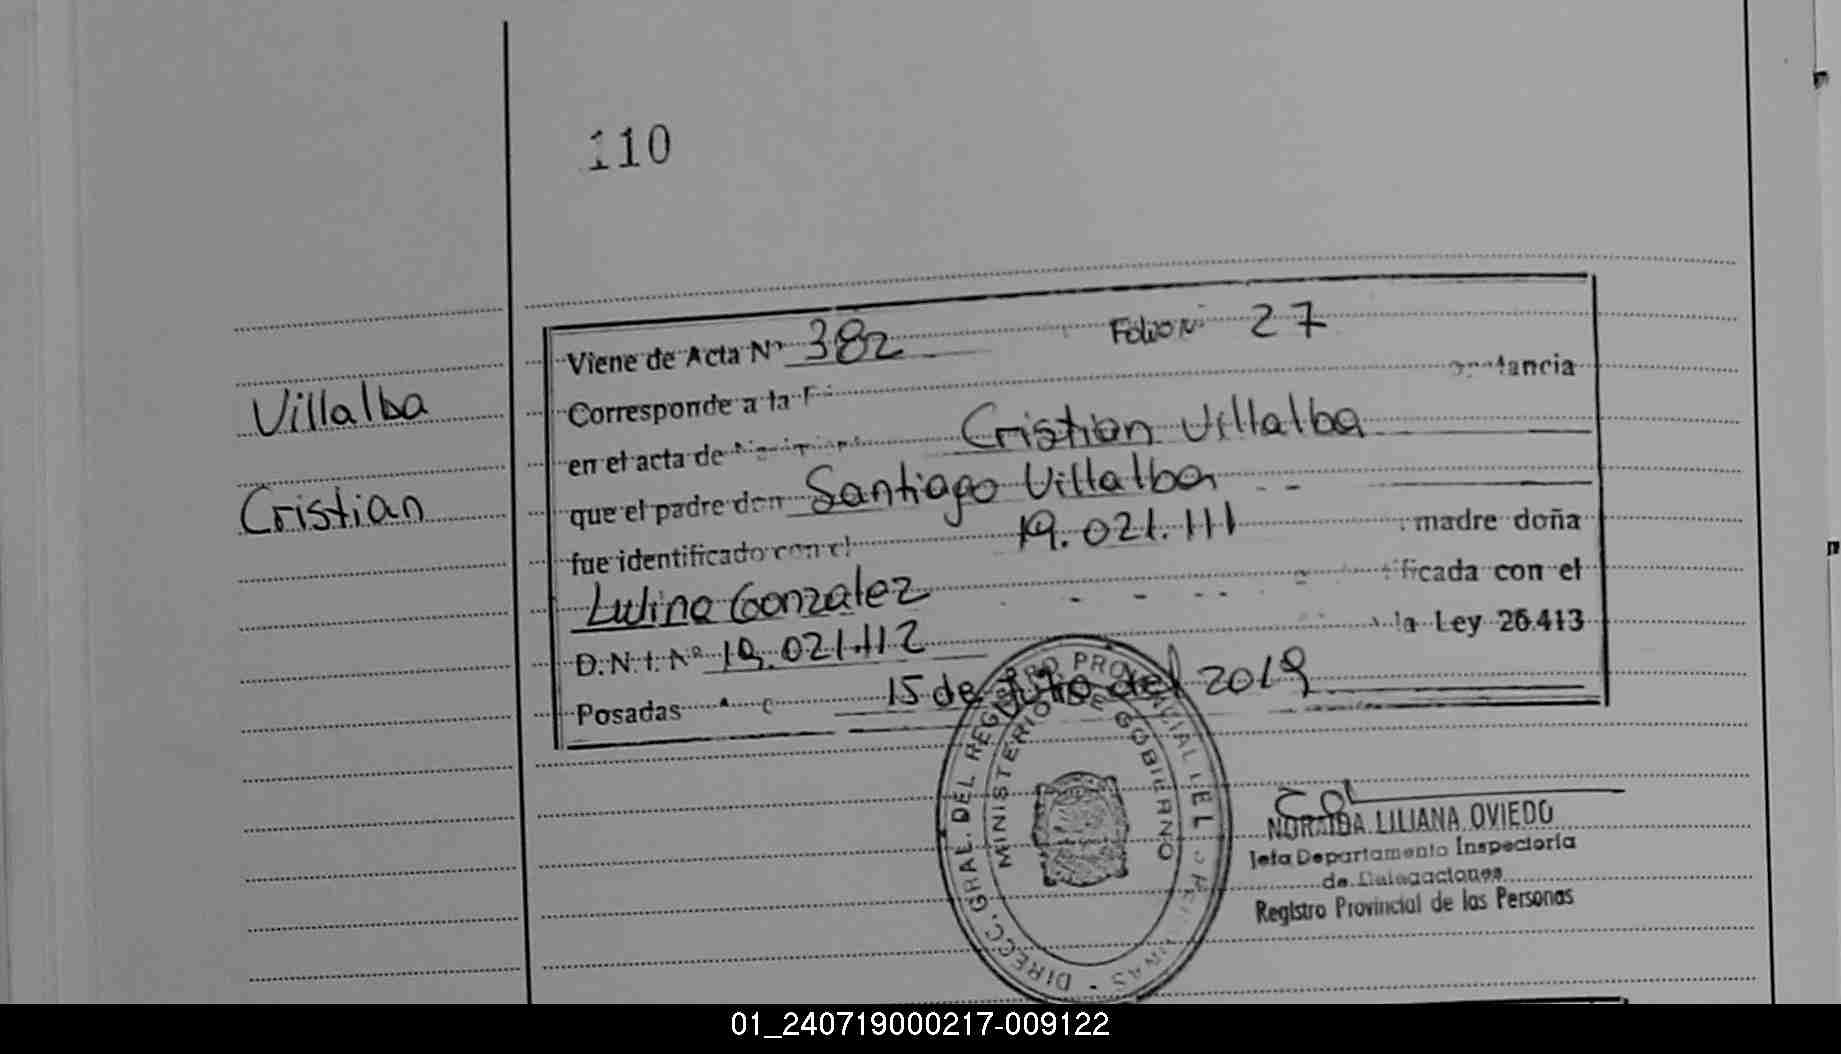 110
Viene de Acta Nº 382 Folio Nº 27
Corresponde a la
Villalba
en el acta de Cristian Villalba
que el padre don Santiago Villalba
Cristian
fue identificado con el 19.021.111 madre doña
Lulina Gonzalez con el
D.N.I. Nº 19.021.112 la Ley 26.413
Posadas 15 de Julio del 2019
DIRECC. GRAL. DEL REGISTRO PROVINCIAL DE L
MINISTERIO DE GOBIERNO
NORAIDA LILIANA OVIEDO
Jefa Departamento Inspectoria
de Delegaciones
Registro Provincial de las Personas
01_240719000217-009122